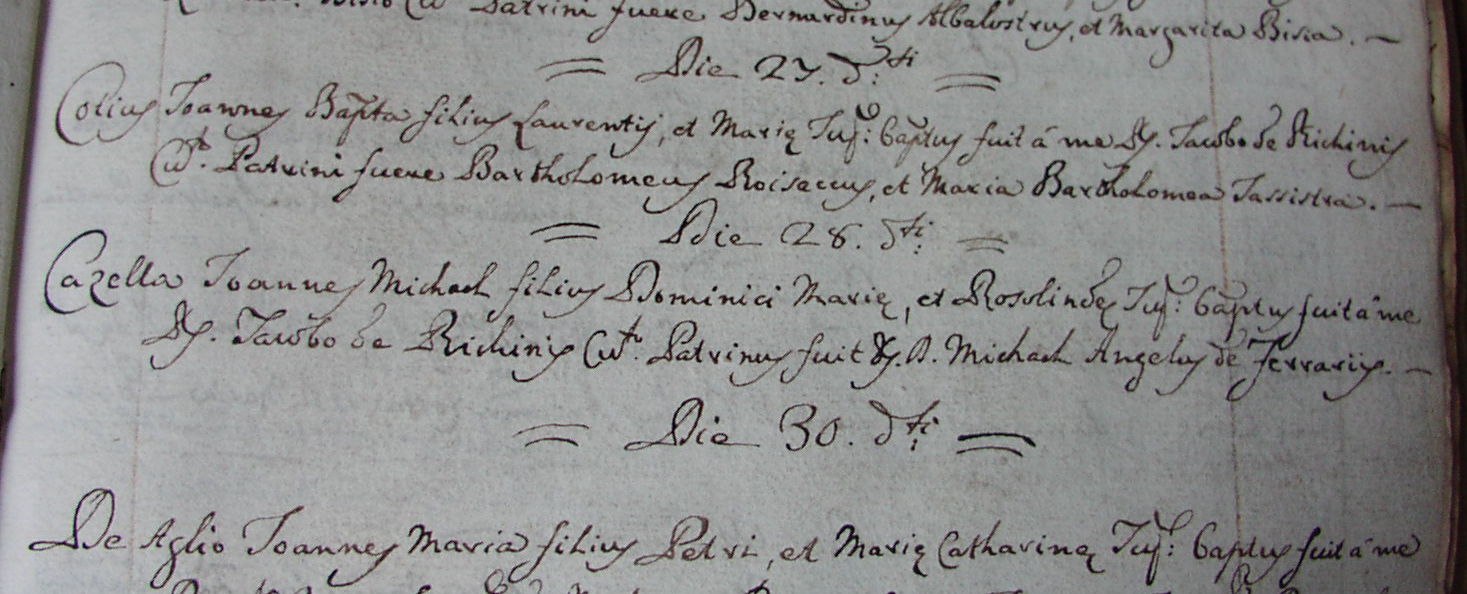 Patrini fuere Bernardinus Albalustrus, et Margarita Bisia. —
= Die 27. d.ti =
Colius Joannes Bapta filius Laurentij, et Marię Jug: baptus fuit à me Jacobo de Richinis
Patrini fuere Bartholomeus Roisecus, et Maria Bartholomea Tassistra. —
= Die 28. d.ti =
Cazella Joannes Michael filius Dominici Marię, et Rosolindę Jug: baptus fuit à me
Jacobo de Richinis Patrinus fuit D. Michael Angelus de Ferrarijs. —
= Die 30. d.ti =
De Aglio Joannes Maria filius Petri, et Marię Catharinę Jug: baptus fuit à me